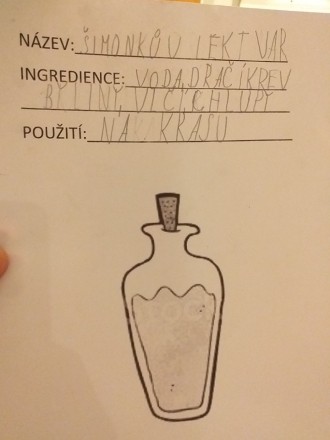 NÁZEV: ŠIMONKŮV LEKTVAR
INGREDIENCE: VODA, DRAČÍ KREV
BYLINY, VLČÍ, CHLUPY
POUŽITÍ: NA KRÁSU